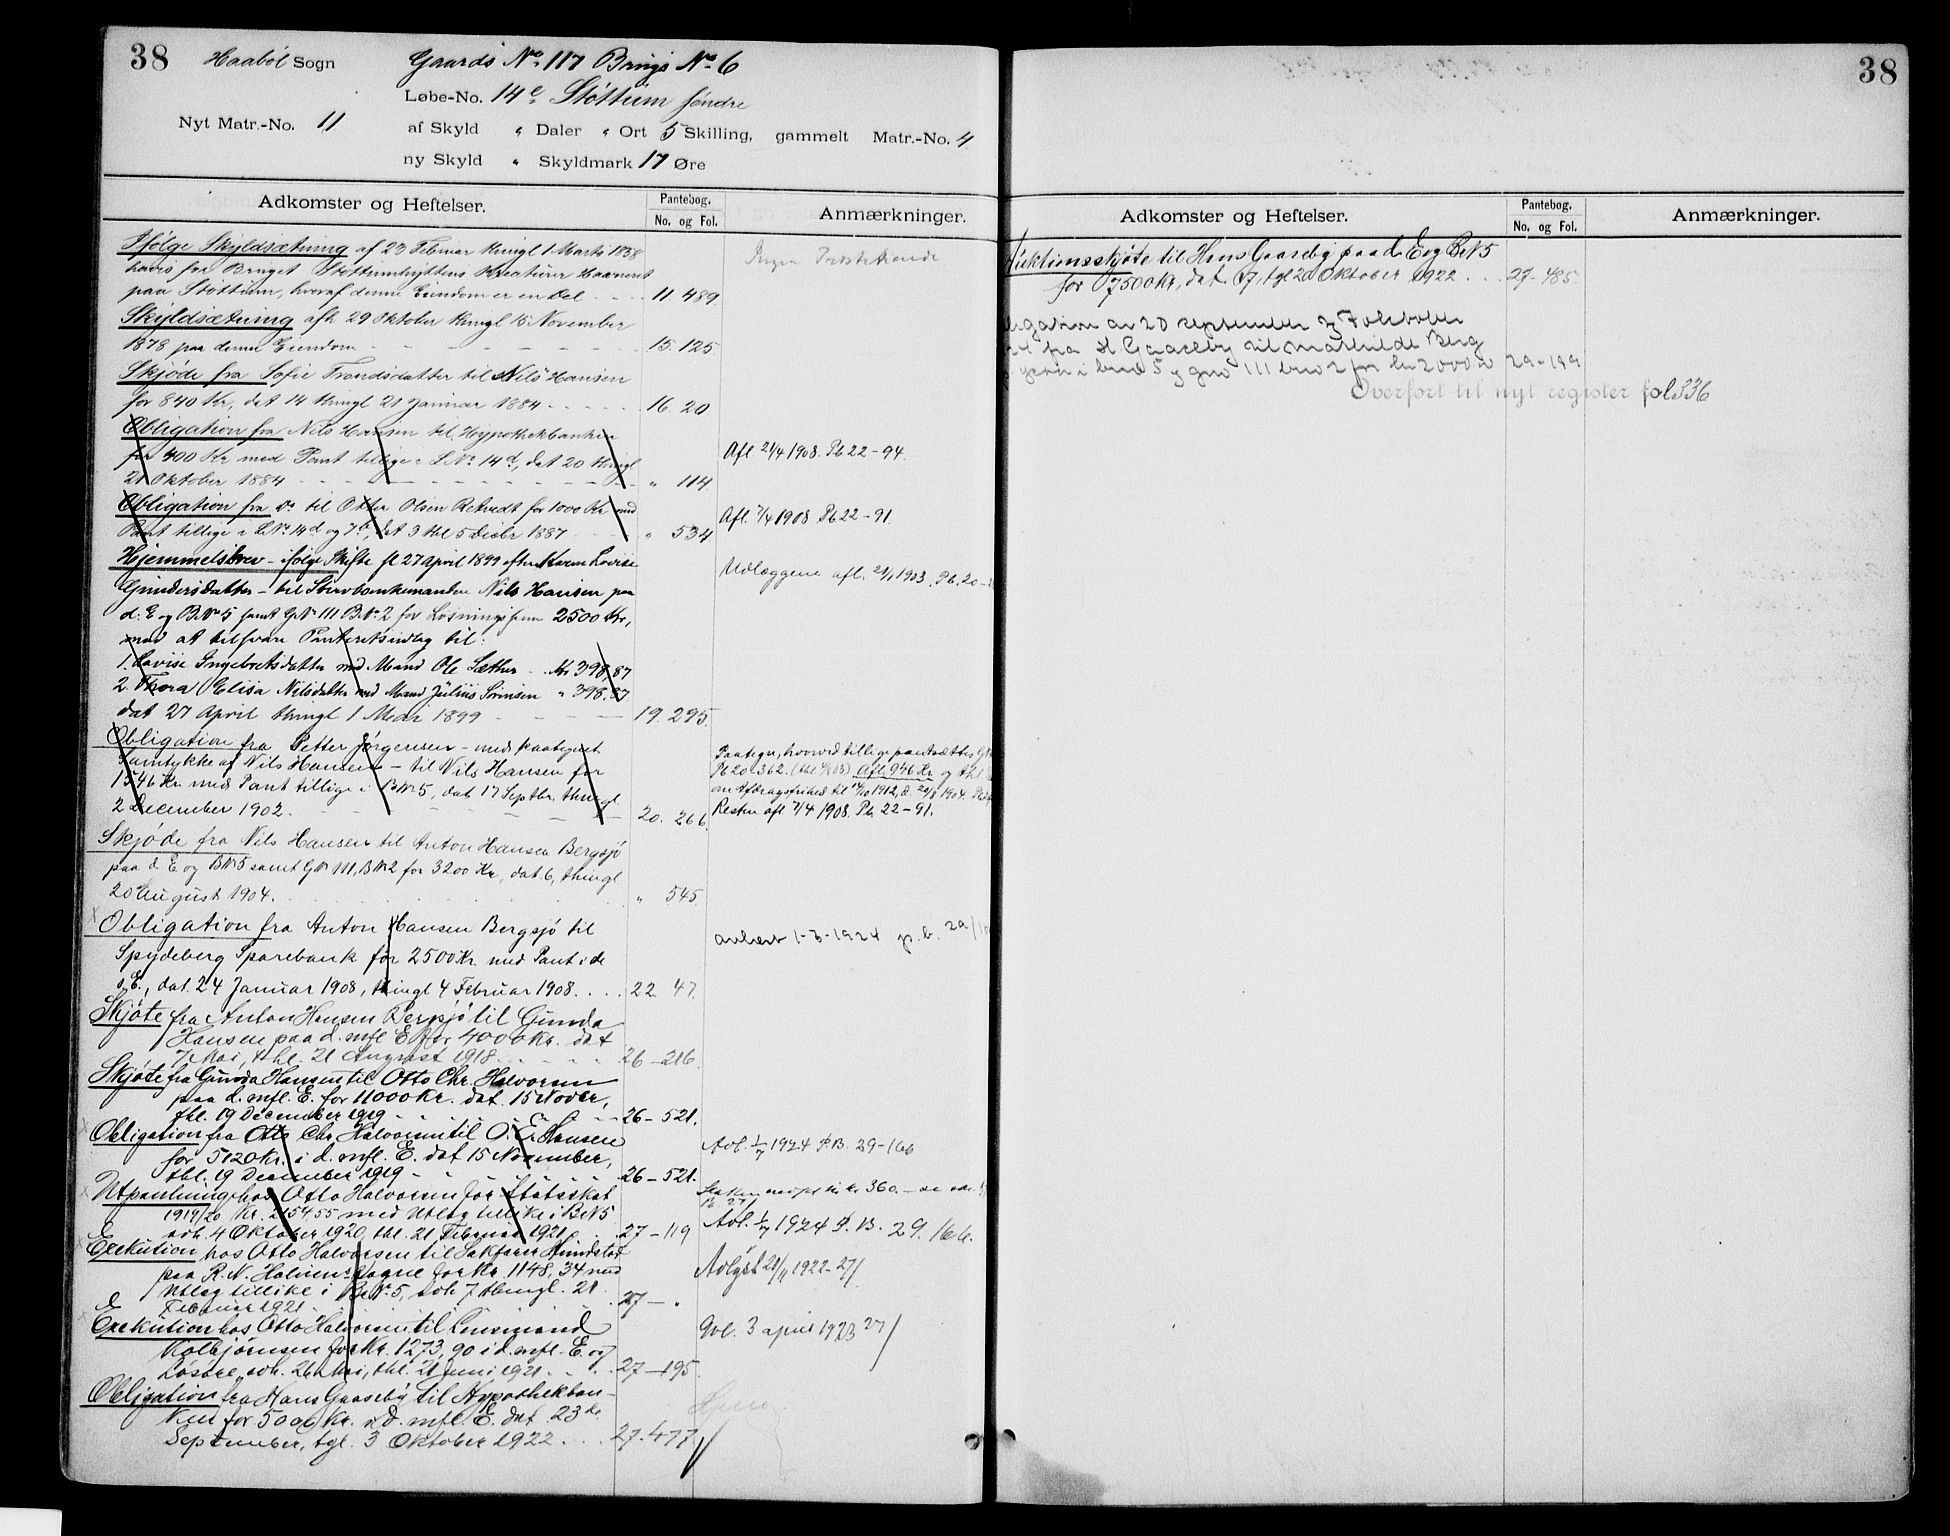 38 Haaböl Sogn Gaards No. 117 Brugs No. 6
Løbe-No. 14 e. Støttum søndre
Nyt Matr.-No. 11 af Skyld " Daler " Ort 5 Skilling, gammelt Matr.-No. 4
ny Skyld " Skyldmark 17 Øre
Adkomster og Heftelser. Pantebog. No. og Fol. Anmærkninger.
Ifølge Skyldsætning af 23 Februar thingl 1 Marts 1838
havis for Bruget Støttumhyttens Havneret
paa Støttum, hvoraf denne Eiendom er en Del 11 489.
Skyldsætning afh 29 Oktober thingl 15 November
1878 paa denne Eiendom 15. 125
Skjøde fra Sofie Trondsdatter til Nils Hansen
for 840 Kr, dat 14 thingl 21 Januar 1884 16. 20
Obligation fra Nils Hansen til Hypothekbanken
for 400 Kr med Pant tillige i L.No. 14 d, dat 20 thingl Afl 21/4 1908. Pb 22-94.
21 Oktober 1884 " 114.
Obligation fra do til Otter Olsen Retvedt for 1000 Kr med Afl. 7/4 1908 Pb 22-91.
Pant tillige i L.No. 14 d og 7 b, dat 3 thl 5 Decbr 1887 " 534
Hjemmelsbrev - ifølge Skifte sl 27 April 1899 efter Karen Lovise
Gundersdatter - til Nils Hansen paa Udlæggene afl. 1903. Pb. 20-
d. E og B.No. 5 samt G.No. 111 B.No. 2 for Løsningssum 2500 Kr,
mod at tilsvare Panteretsudlæg til:
1. Lovise Ingebretsdatter med Mand Ole Sæther Kr 398,87
2. Thora Elisa Nilsdatter med Mand Julius Sørensen " 398.87
dat 27 April thingl 1 Mai 1899 19. 295.
Obligation fra Petter Jørgensen - med paategnet
Samtykke af Nils Hansen - til Nils Hansen for Paategn, hvorved tillige pantsættes G.No.
1546 Kr med Pant tillige i B.No. 5, dat 17 Septbr, thingl Pb 20-362. Afl. 946 Kr og thl
2 December 1902. 20. 266. Resten afl 7/4 1908. Pb. 22-91.
Skjøde fra Nils Hansen til Anton Hansen Bergsjø
paa d E og B.No. 5 samt G.No. 111, B.No. 2 for 3200 Kr, dat. 6, thingl
20 August 1904. " 545.
Obligation fra Anton Hansen Bergsjø til
Spydeberg Sparebank for 2500 Kr med Pant i de avlæst 1-3-1924 p.b. 29/
s E., dat. 24 Januar 1908, thingl 4 Februar 1908. 22 47.
Skjøte fra Anton Hansen Bergsjö til Gunda
Hansen paa d. mfl E for 4000 Kr. dat
7 Mai, thl. 21 August 1918. 26-216.
Skjøte fra Gunda Hansen til Otto Chr. Halvorsen
paa d. mfl. E. for 11000 Kr. dat. 15 Novbr,
thl. 19 December 1919 26-521.
Obligation fra Otto Chr. Halvorsen til O. E. Hansen
for 5120 Kr. i d. mfl. E. dat 15 November, Avl. 1/7 1924 P.B. 29-166
thl. 19 December 1919 26-521.
Utpantning hos Otto Halvorsen for Statsskat
1919/20 Kr. 2154.55 med Utlæg tillike i B.No. 5
avh. 4 Oktober 1920, thl. 21 Februar 1921. 27-119 Avl. 1/7 1924 P.B. 29. 166.
Exekution hos Otto Halvorsen til Sakfører Mundstad
paa R. N. Halvorsens vegne for Kr. 1148,34 med Avlyst 1922-27/
Utlæg tillike i B.No. 5, avh 7 thingl. 21
Februar 1921. 27- "
Exekution hos Otto Halvorsen til Lensmand
Kolbjørnsen for Kr. 1273,90 i d. mfl. E. og Avl. 3 april 1923 27/
Løsøre, avh. 26 Mai, thl. 21 Juni 1921. 27-195.
Obligation fra Hans Gaaseby til Hypothekban-
ken for 5000 Kr. i d. mfl. E. dat. 23de
September, tgl. 3 Oktober 1922. 27.477
38
Adkomster og Heftelser. Pantebog. No. og Fol. Anmærkninger.
Auktionsskjøte til Hans Gaaseby paa d. E og B.No. 5
for 7500 Kr, dat. 17, tgl 20 Oktober 1922. 27-485.
ligation av 20 september
fra H Gaaseby til Mathilde Berg
i bno 5 og gno 111 bno 2 for kr 2000 29-199
Overført til nyt register fol. 336